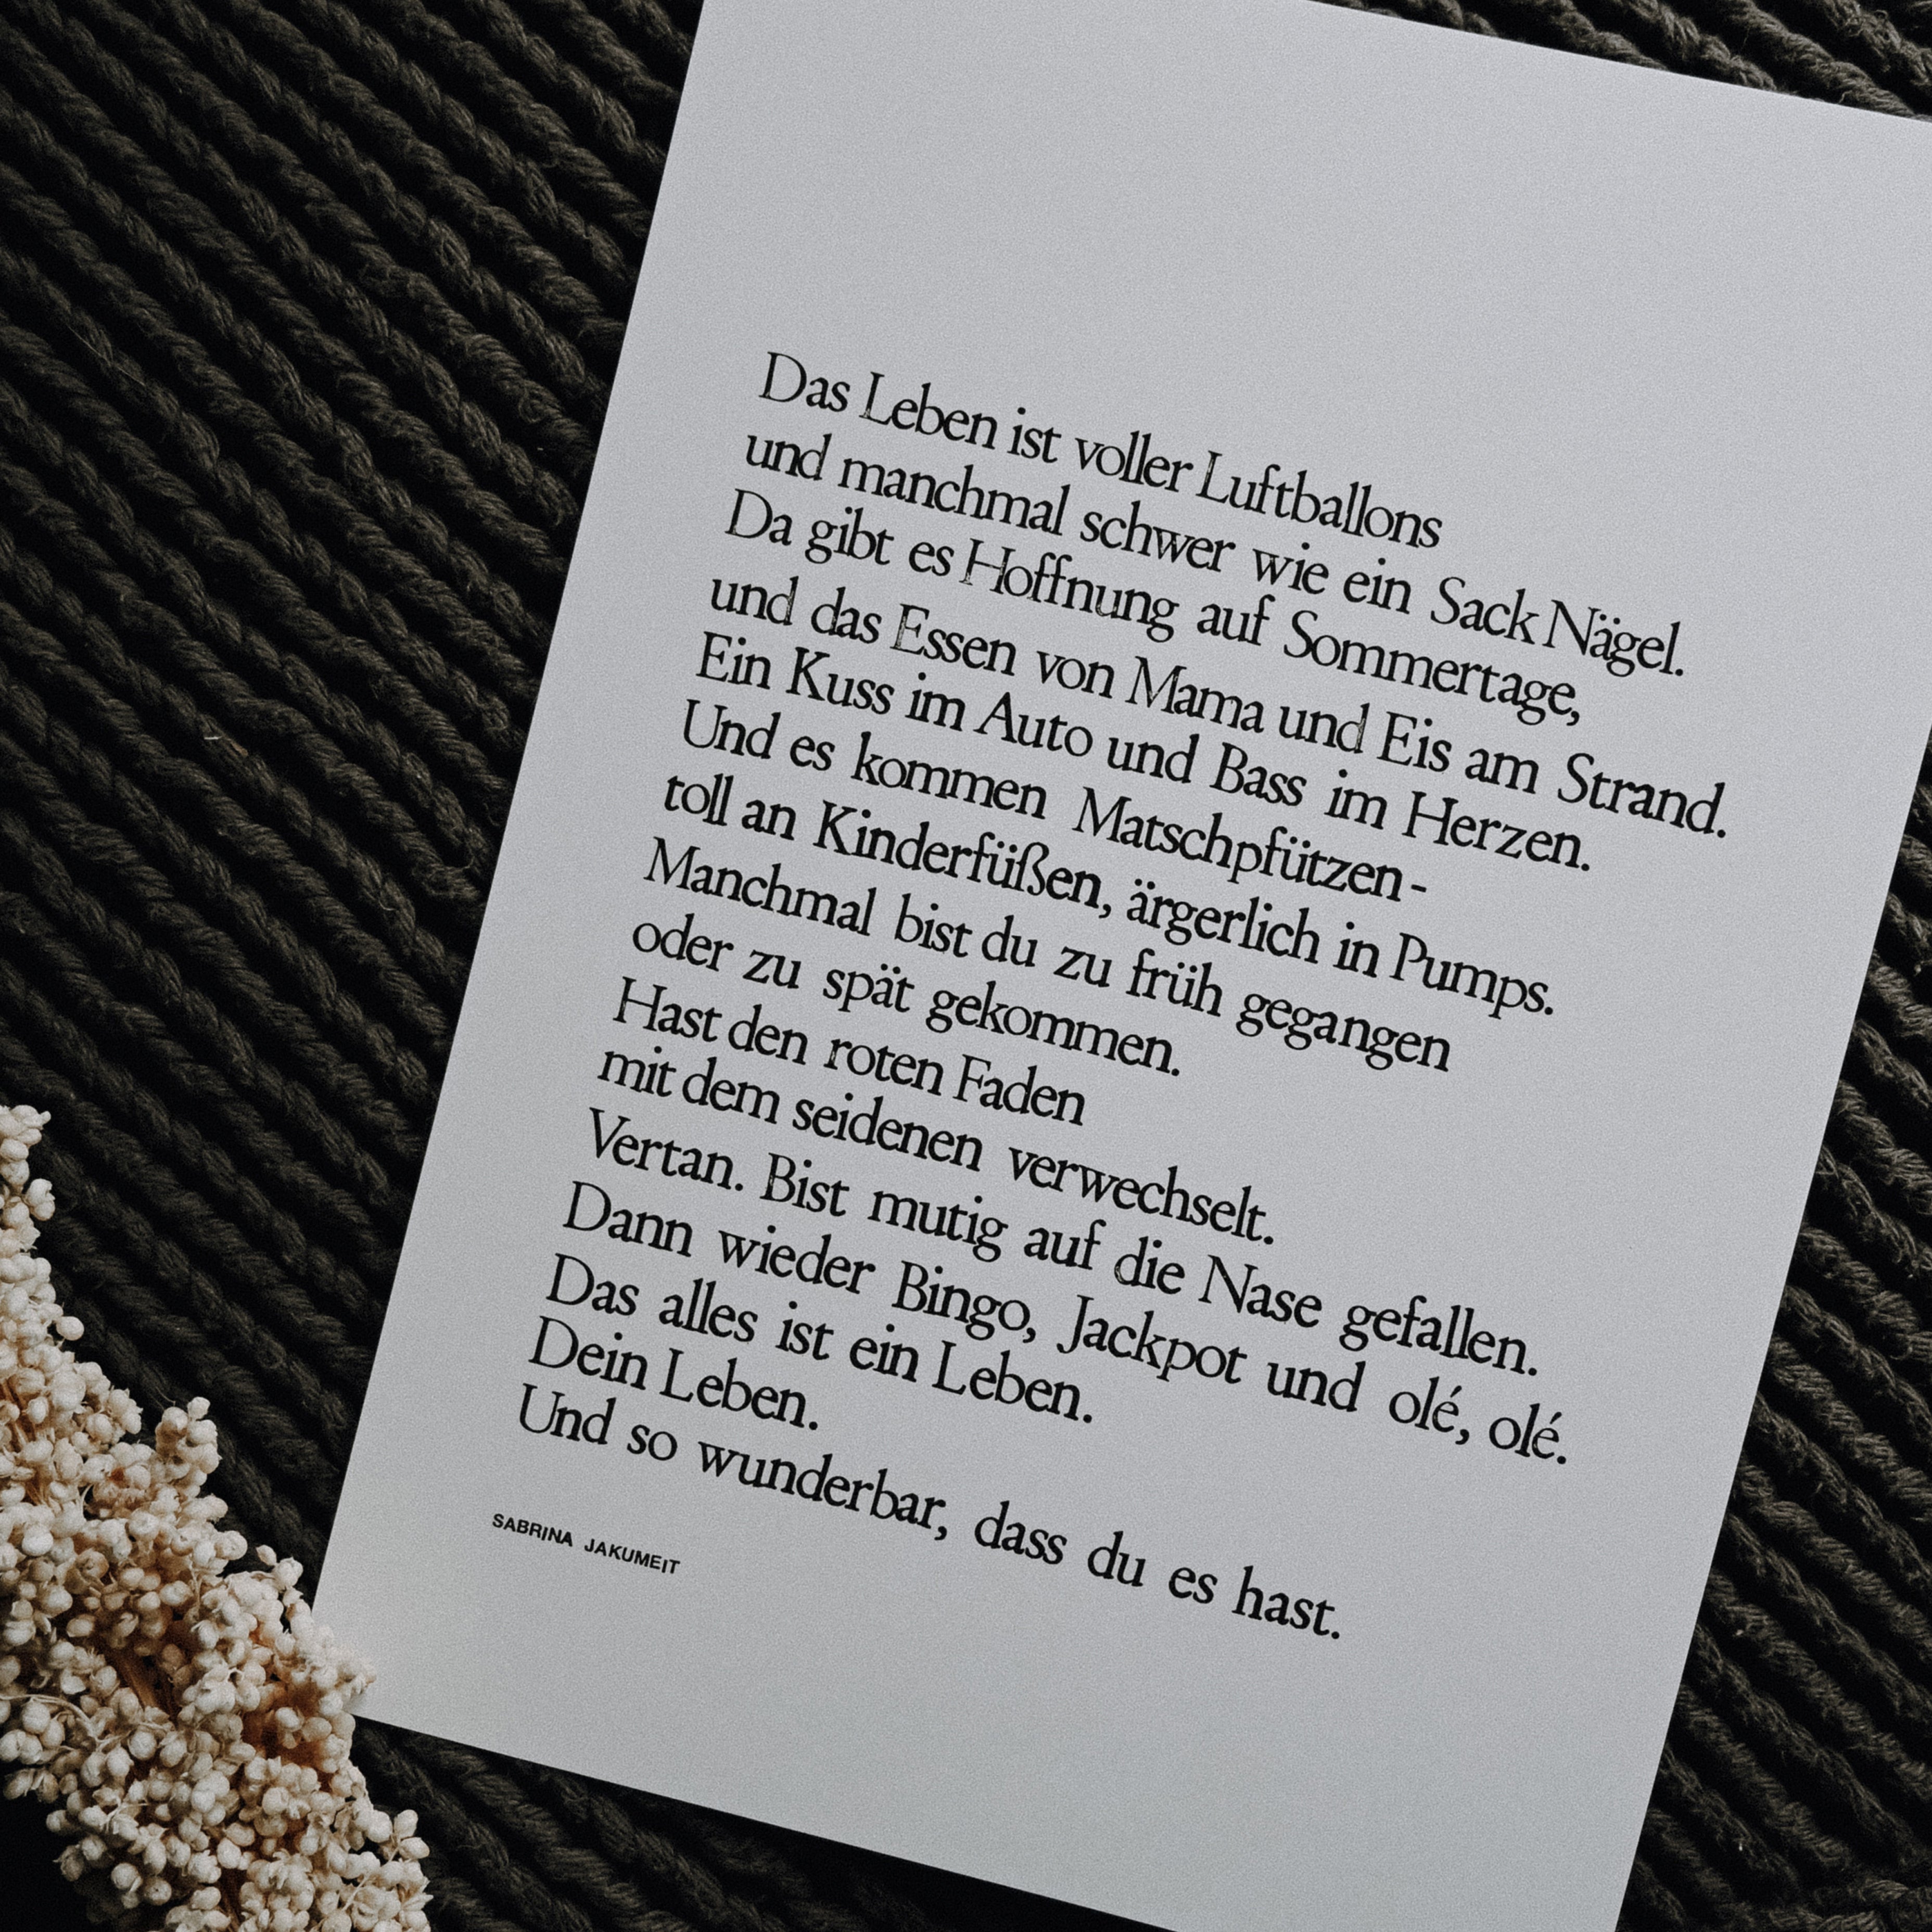 Das Leben ist voller Luftballons
und manchmal schwer wie ein Sack Nägel.
Da gibt es Hoffnung auf Sommertage,
und das Essen von Mama und Eis am Strand.
Ein Kuss im Auto und Bass im Herzen.
Und es kommen Matschpfützen-
toll an Kinderfüßen, ärgerlich in Pumps.
Manchmal bist du zu früh gegangen
oder zu spät gekommen.
Hast den roten Faden
mit dem seidenen verwechselt.
Vertan. Bist mutig auf die Nase gefallen.
Dann wieder Bingo, Jackpot und olé, olé.
Das alles ist ein Leben.
Dein Leben.
Und so wunderbar, dass du es hast.
SABRINA JAKUMEIT